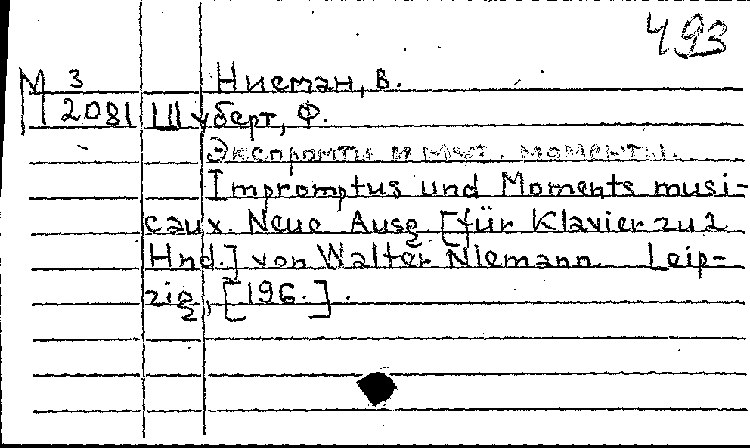 493
М 3 Нисман, В.
2081 Шуберт, Ф.
Экспромты и муз. моменты.
Impromptus und Moments musi-
caux. Neue Ausg [für Klavier zu 2
Hnd.] von Walter Niemann Leip-
zig, [196.].